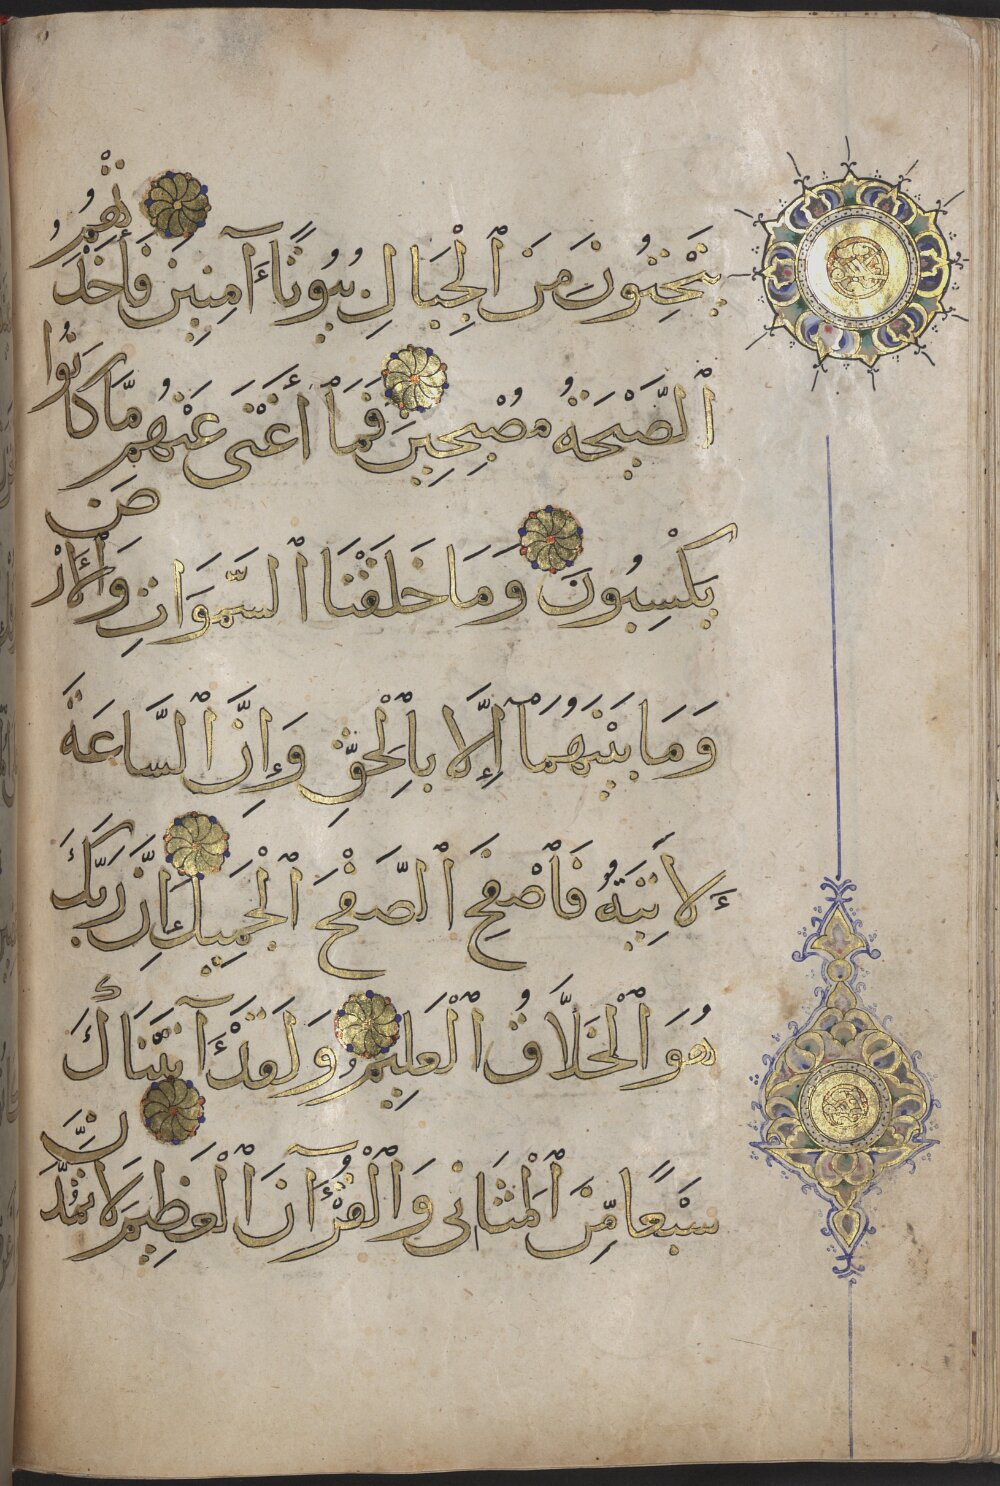 يَنْحِتُونَ مِنَ ٱلْجِبَالِ بُيُوتًا آمِنِينَ فَأَخَذَتْهُمُ
ٱلصَّيْحَةُ مُصْبِحِينَ فَمَا أَغْنَى عَنْهُم مَّا كَانُوا
يَكْسِبُونَ وَمَا خَلَقْنَا ٱلسَّمَوَاتِ وَٱلْأَرْضَ
وَمَا بَيْنَهُمَا إِلَّا بِٱلْحَقِّ وَإِنَّ ٱلسَّاعَةَ
لَآتِيَةٌ فَٱصْفَحِ ٱلصَّفْحَ ٱلْجَمِيلَ إِنَّ رَبَّكَ
هُوَ ٱلْخَلَّاقُ ٱلْعَلِيمُ وَلَقَدْ آتَيْنَاكَ
سَبْعًا مِّنَ ٱلْمَثَانِي وَٱلْقُرْآنَ ٱلْعَظِيمَ لَا تَمُدَّنَّ